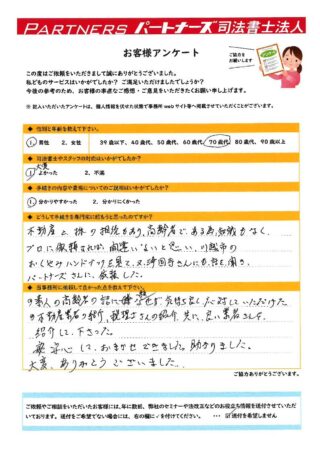 PARTNERS パートナーズ司法書士法人
お客様アンケート
ご協力を
お願いします
この度はご依頼をいただきまして誠にありがとうございました。
私どものサービスはいかがでしたか? ご満足いただけましたでしょうか?
今後の参考のため、お客様の率直なご感想・ご意見をいただきたくお願い申し上げます。
※ 記入いただいたアンケートは、個人情報を伏せた状態で事務所 web サイト等へ掲載させていただくことがございます。
◆ 性別と年齢を教えて下さい。
1. 男性 2. 女性 39歳以下、40歳代、50歳代、60歳代、70歳代、80歳代、90歳以上
◆ 司法書士やスタッフの対応はいかがでしたか?
大変
1. よかった 2. 不満
◆ 手続きの内容や費用についてのご説明はいかがでしたか?
1. 分かりやすかった 2. 分かりにくかった
◆ どうして手続きを専門家に頼もうと思ったのですか?
不動産と、株の相続もあり、高齢者である為、知識もなく、
プロに依頼すれば、間違いないと思い、川越市の
おくやみハンドブックを見て、又、
パートナーズさんに、依頼した。
◆ 当事務所に依頼して良かった点を教えて下さい。
素人の高齢者の話に嫌な顔せず、気持ち良く対応していただけた
不動産業者の紹介、税理士さんの紹介、共に、良い業者さんを
紹介して下さった。
安心して、おまかせできました。助かりました。
大変、ありがとうございました。
ご協力ありがとうございます。
ご依頼やご相談をいただいたお客様には、年に数回、弊社のセミナーや法改正などのお役立ち情報を送付させていただいて
おります。送付をご希望でない場合は、右の欄に✓を付けてください。 ・・・ 送付を希望しません